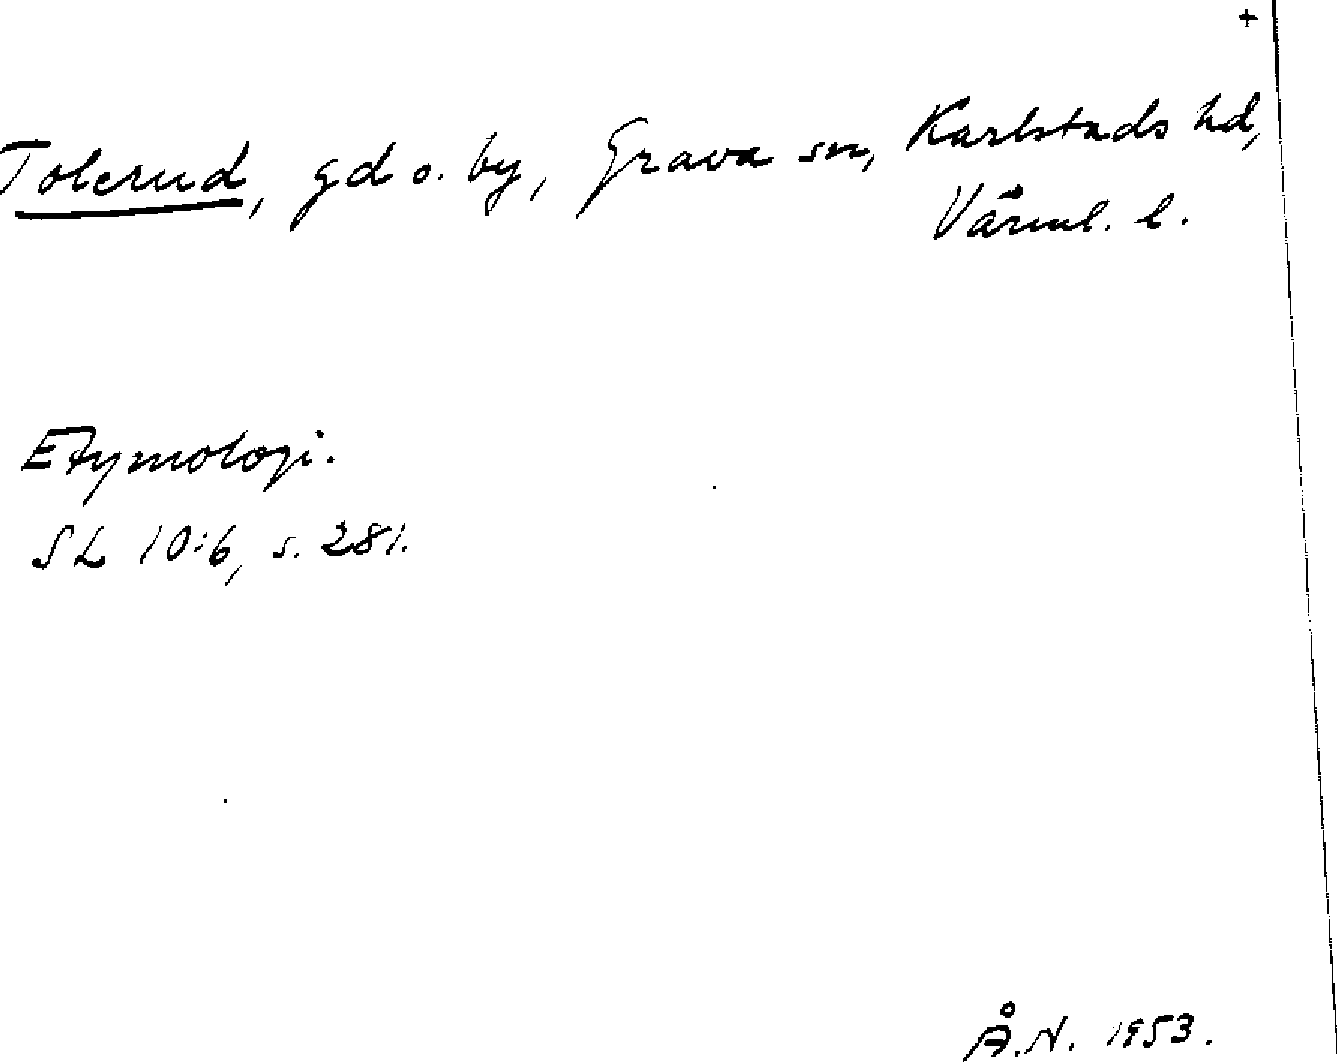 +
Tolerud, gd o. by, Grava sn, Karlstads hd,
Värml. l.
Etymologi.
SL 10:6, s. 281.
Å.N. 1953.